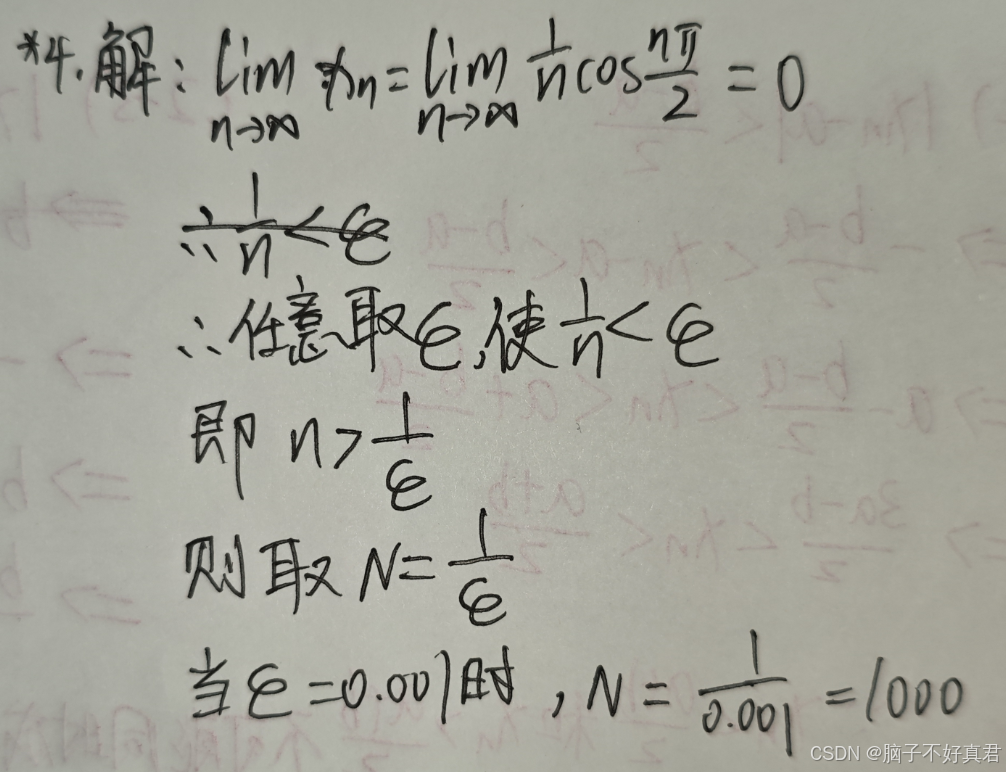 *4.解: lim n→∞ xn = lim n→∞ 1/n cos nπ/2 = 0
∴ 1/n < ε
∴任意取ε,使 1/n < ε
即 n > 1/ε
则取 N = 1/ε
当 ε = 0.001时, N = 1/0.001 = 1000
CSDN @脑子不好真君